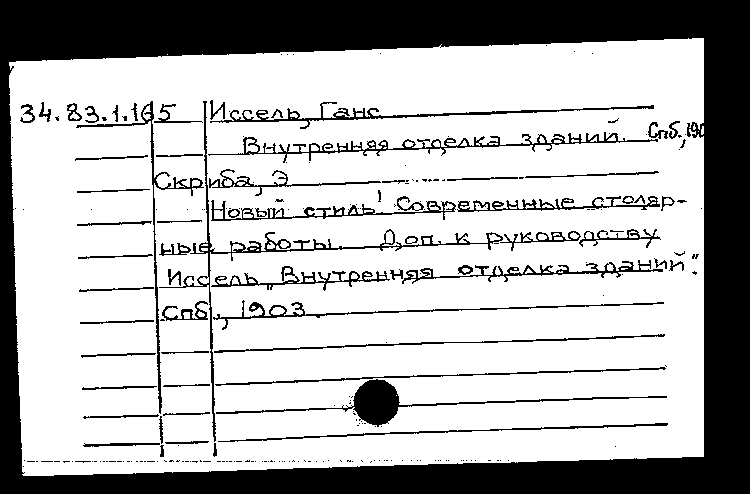 34.83.1.165 Иссель, Ганс
Внутренняя отделка зданий. Спб., 190
Скриба, Э
Новый стиль! Современные столяр-
ные работы. Доп. к руководству
Иссель „Внутренняя отделка зданий".
Спб., 1903.